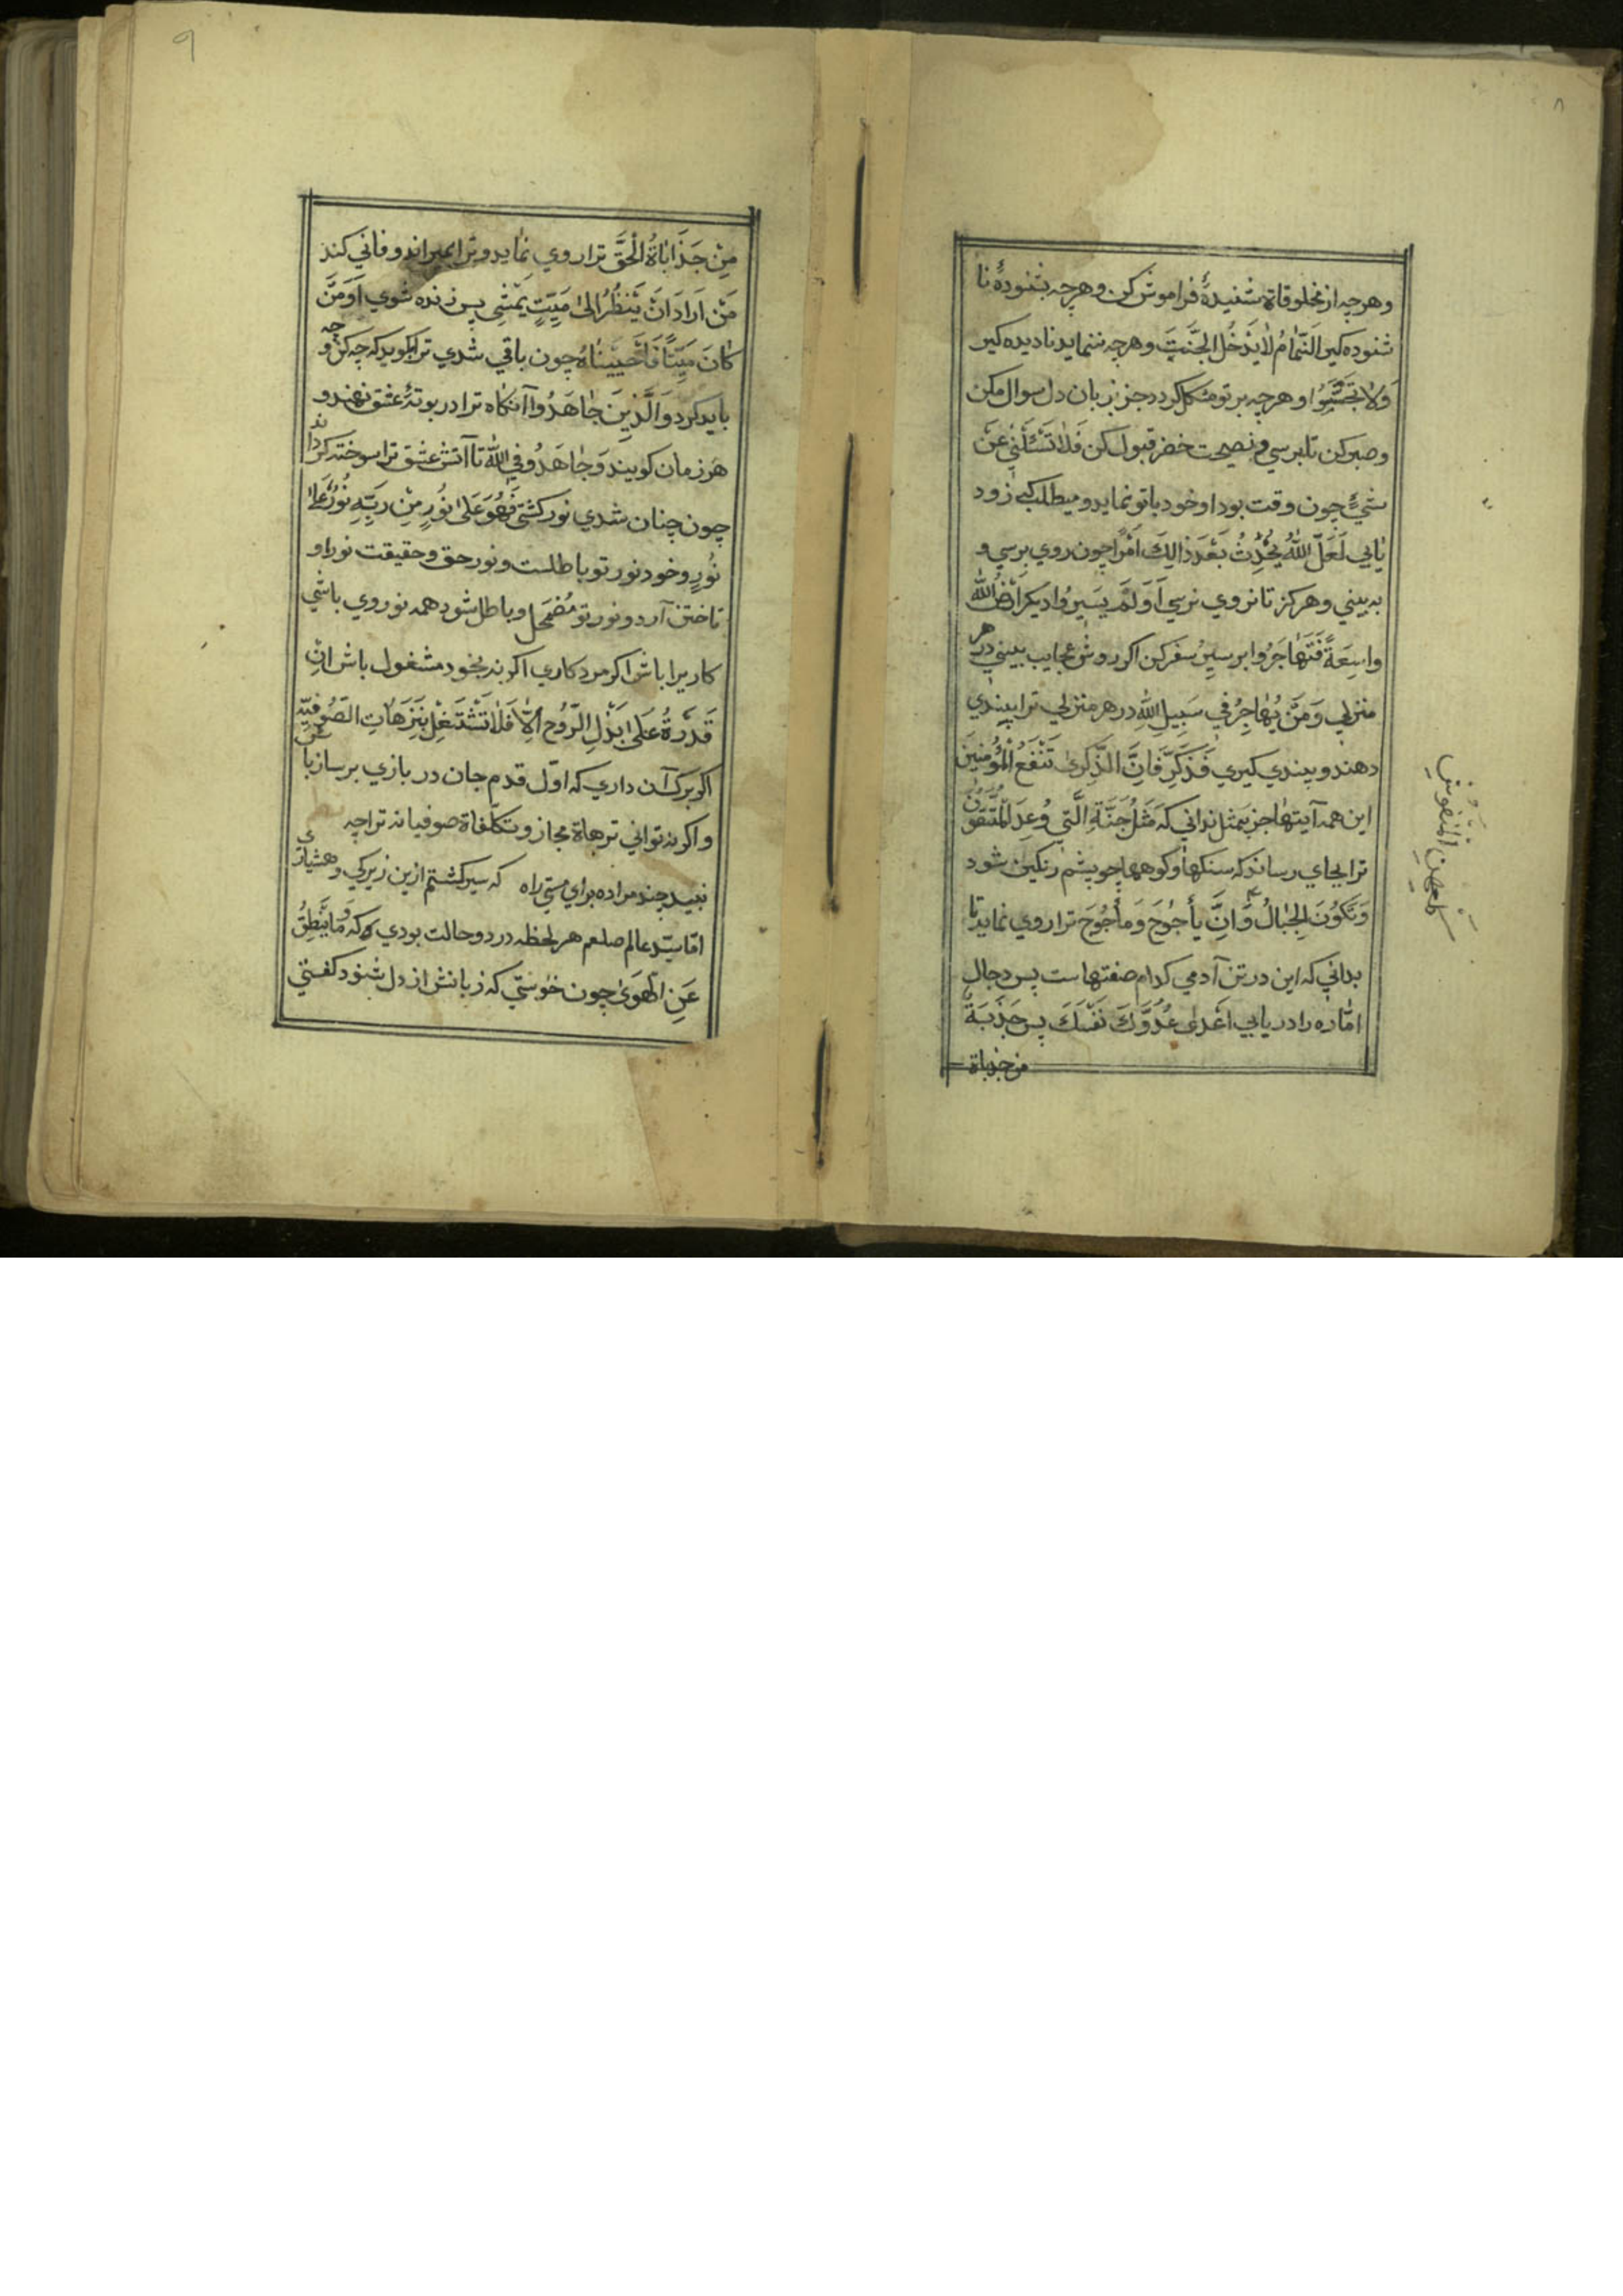 ۸
وهرچه از مخلوقاة شنیدهٔ فراموش کن وهرچه بشنودهٔ نا
شنوده کیر النَّمّامُ لاٰیَدْخُلُ الجَنَّتِ وهرچه ننماید نادیده کیر
وَلاٰ تَجَسَّسُوا وهرچه بر تو مشکل کردد جز بزبان دل سوال مکن
وصبر کن تا برسي ونصیحت خضر قبول کن فَلاٰ تَسْئَلْنِي عَنْ
شَيْءٍ چون وقت بود او خود باتو نماید ومیطلب کي زود
یابي لَعَلَّ اللّٰهَ یُحْدِثُ بَعْدَ ذالِكَ اَمْرًا چون روي برسي و
به بیني وهرکز تا نروي نرسي اَوَلَمْ یَسیرُوا دیکر اَرْضُ اللّٰه
واسِعَةً فَتَهٰاجَرُوا بر سیرِ سفر کن اکر روش عجایب بیني در هر
منزلي وَمَنْ یُهٰاجِرْ في سَبِیلِ اللّٰهِ در هر منزلي ترا پندي
دهند وپندي کیري فَذَکِّرْ فَاِنَّ الذِّکریٰ تَنْفَعُ الْمُؤْمِنینَ
این همه آیتهٰا جز بمثل نداني که مَثَلُ جَنَّةِ الَّتي وُعِدَ الْمُتَّقُونَ
ترا بجاي رساند که سنکها وکوهها چو پشم رنکین شود
وَتَکُونَ الجِبٰالُ وَاِنَّ یأجُوجَ وَمأجُوجَ ترا روي نماید تا
بداني که این در تن آدمي کدام صفتهاست پس دجال
امّاره را دریابي اَعْدیٰ عَدُوَّكَ نَفْسَكَ پس جَذْبَةٌ
من جذباة
کَالْعِهْنِ الْمَنْفُوشِ
۹
مِنْ جَذَابٰاةُ الْحَقّ ترا روي نماید وترا بمیراند وفاني کند
مَنْ اَرَادَ اَنْ یَنْظُرُ اِلیٰ مَیِّتٍ یَمْشِي پس زنده شوي اَوَمَنْ
کٰانَ مَیْتًا فَاَحْیَیْنٰاهُ چون باقي شدي ترا بکوید که چه کن و چه
باید کرد وَالَّذِینَ جٰاهَدُوا آنکاه ترا در بوتهٔ عشق نهند و
هر زمان کویند وَجٰاهَدُو فِي اللّٰه تا آتش عشق ترا سوخته کرداند
چون چنان شدي نور کشتي فَهُوَ عَلیٰ نُورٍ مِنْ رَبِّهِ نُورٌ عَلیٰ
نُورٍ وخود نور تو باطلست ونور حق وحقیقت نور او
تاختن آرد ونور تو مُضْمَحِل وباطل شود همه نور وي باشي
کار یرا باش اکر مرد کاري اکر نه بخود مشغول باش اِنِ
قَدَرةُ عَلیٰ بَذْلِ الرّوُح اِلّاٰ فَلاٰ تَشْتَغِلْ بِتِزَهٰاتِ الصُوفیّه
اکر برك آن داري که اوّل قدم جان در بازي بر ساز با
واکر نه تواني ترهاة مجاز وتکلّفاة صوفیانه ترا چه
نبید چند مراده براي مستي راه   که سیر کشتم ازین زیرکي وهشیاري
امّا سیّد عالم صلعم هر لحظه در دو حالت بودي که وَمٰا یَنْطِقُ
عَنِ الْهَویٰ چون خواستي که زبانش از دل شنود کفتي